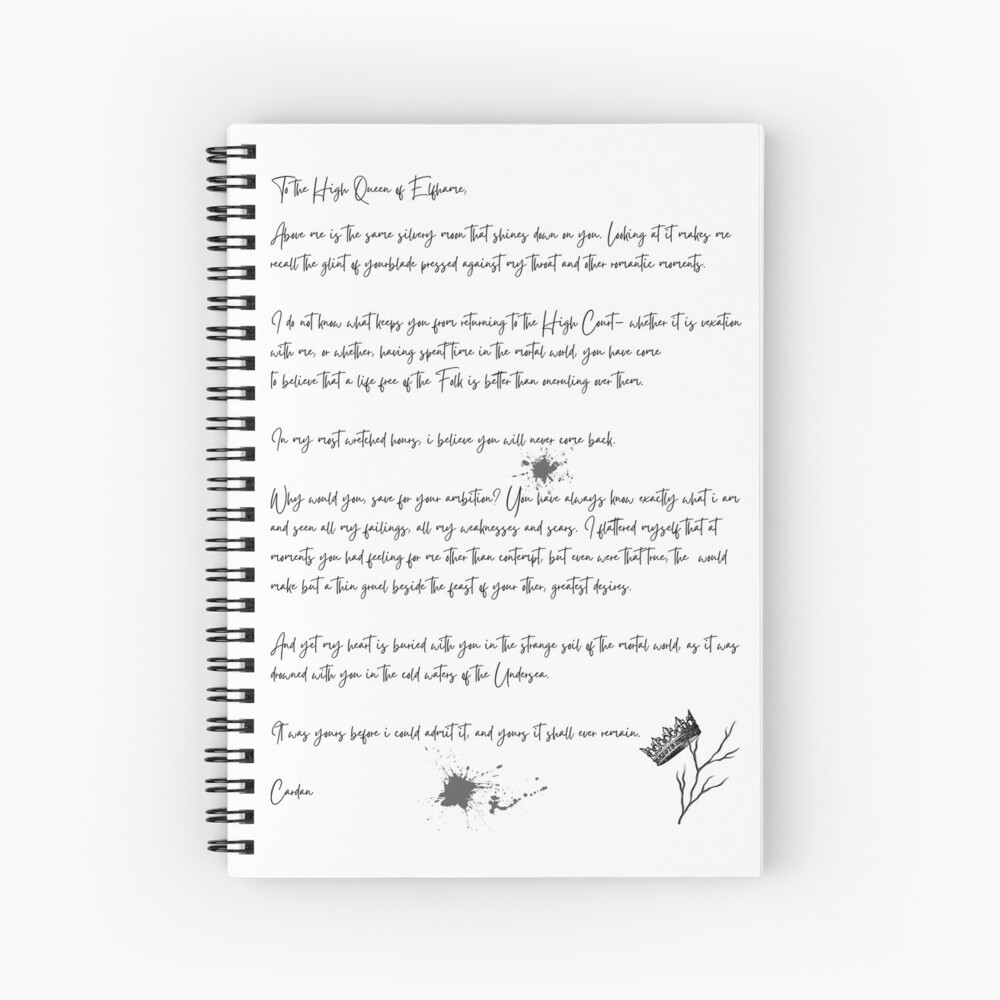 To the High Queen of Elfhame,
Above me is the same silvery moon that shines down on you. Looking at it makes me
recall the glint of yourblade pressed against my throat and other romantic moments.
I do not know what keeps you from returning to the High Court- whether it is vexation
with me, or whether, having spent time in the mortal world, you have come
to believe that a life free of the Folk is better than oneruling over them.
In my most wretched hours, i believe you will never come back.
Why would you, save for your ambition? You have always know exactly what i am
and seen all my failings, all my weaknesses and scars. I flattered myself that at
moments you had feeling for me other than contempt, but even were that true, the would
make but a thin gruel beside the feast of your other, greatest desires.
And yet my heart is buried with you in the strange soil of the mortal world, as it was
drowned with you in the cold waters of the Undersea.
It was yours before i could admit it, and yours it shall ever remain.
Cardan